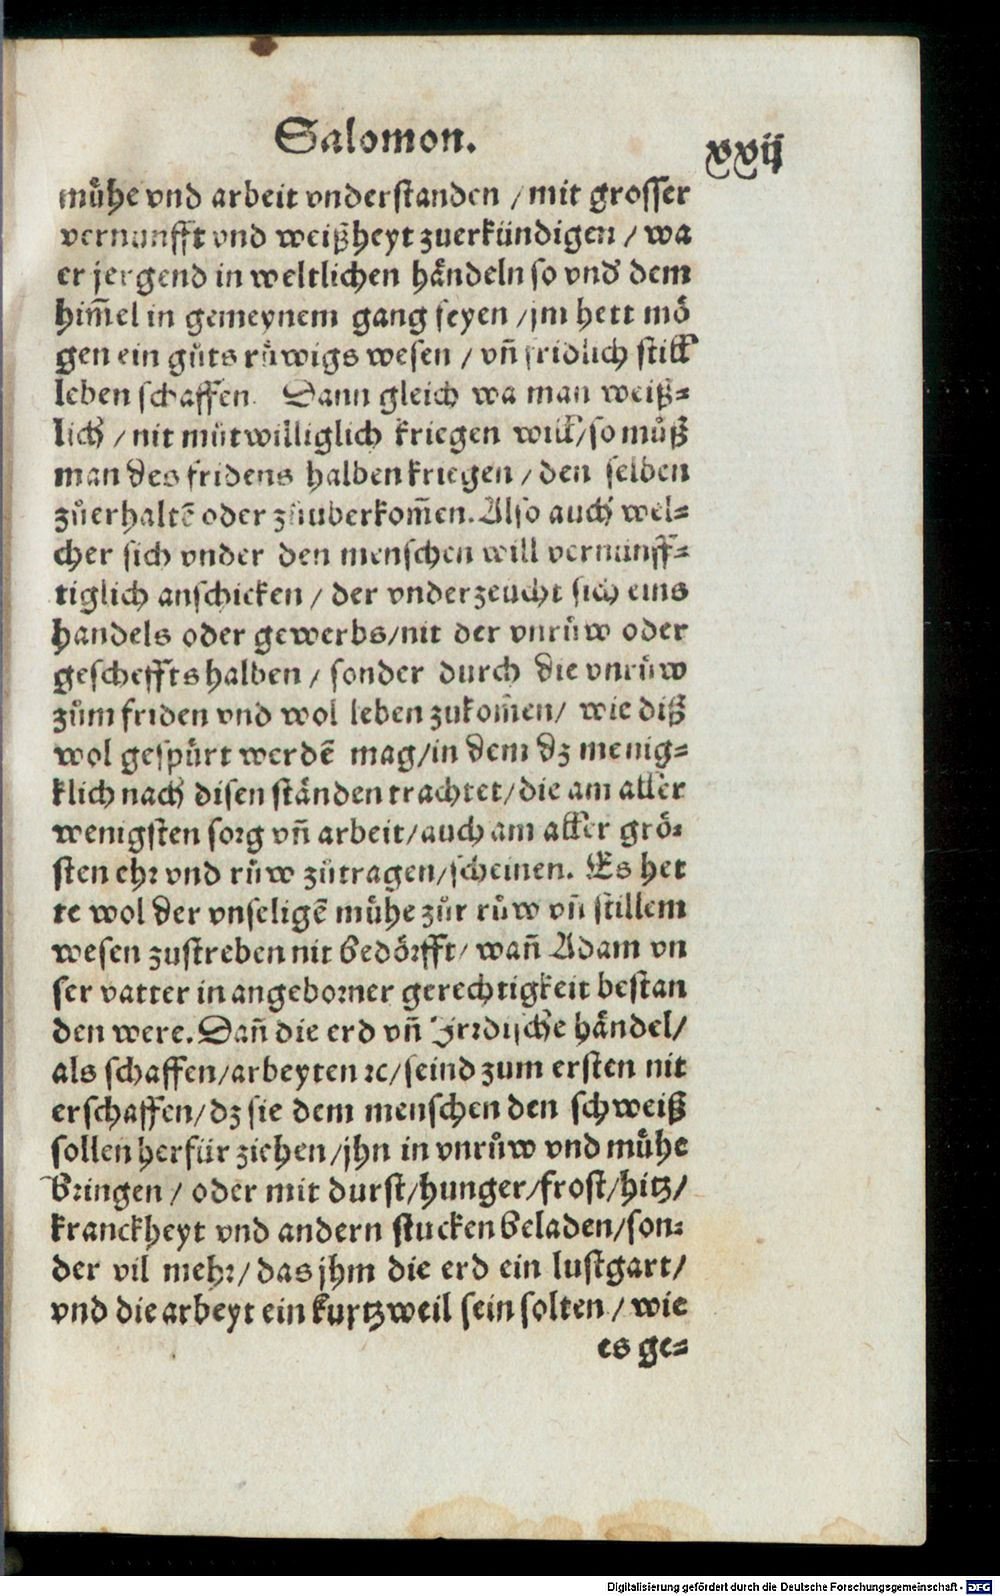 Salomon.
xxvij
mühe vnd arbeit vnderstanden / mit grosser
vernunfft vnd weißheyt zuerkündigen / wa
er jergend in weltlichen håndeln so vnd dem
him̃el in gemeynem gang seyen / jm hett mö
gen ein gůts růwigs wesen / vñ fridlich still
leben schaffen. Dann gleich wa man weiß-
lich / nit můtwilliglich kriegen will / so můß
man des fridens halben kriegen / den selben
zůerhaltẽ oder zůuberkom̃en. Also auch wel-
cher sich vnder den menschen will vernunff-
tiglich anschicken / der vnderzeucht sich eins
handels oder gewerbs / nit der vnrůw oder
gescheffts halben / sonder durch die vnrůw
zům friden vnd wol leben zukom̃en / wie diß
wol gespürt werdẽ mag / in dem dz menig-
klich nach disen ständen trachtet / die am aller
wenigsten sorg vñ arbeit / auch am aller grö-
sten ehr vnd růw zůtragen / scheinen. Es het
te wol der vnseligẽ mühe zůr růw vñ stillem
wesen zustreben nit bedörfft / wañ Adam vn
ser vatter in angeborner gerechtigkeit bestan
den were. Dañ die erd vñ Jrrdische händel /
als schaffen / arbeyten ꝛc / seind zum ersten nit
erschaffen / dz sie dem menschen den schweiß
sollen herfür ziehen / jhn in vnrůw vnd mühe
bringen / oder mit durst / hunger / frost / hitz /
kranckheyt vnd andern stucken beladen / son-
der vil mehr / das jhm die erd ein lustgart /
vnd die arbeyt ein kurtzweil sein solten / wie
es ge-
Digitalisierung gefördert durch die Deutsche Forschungsgemeinschaft - DFG